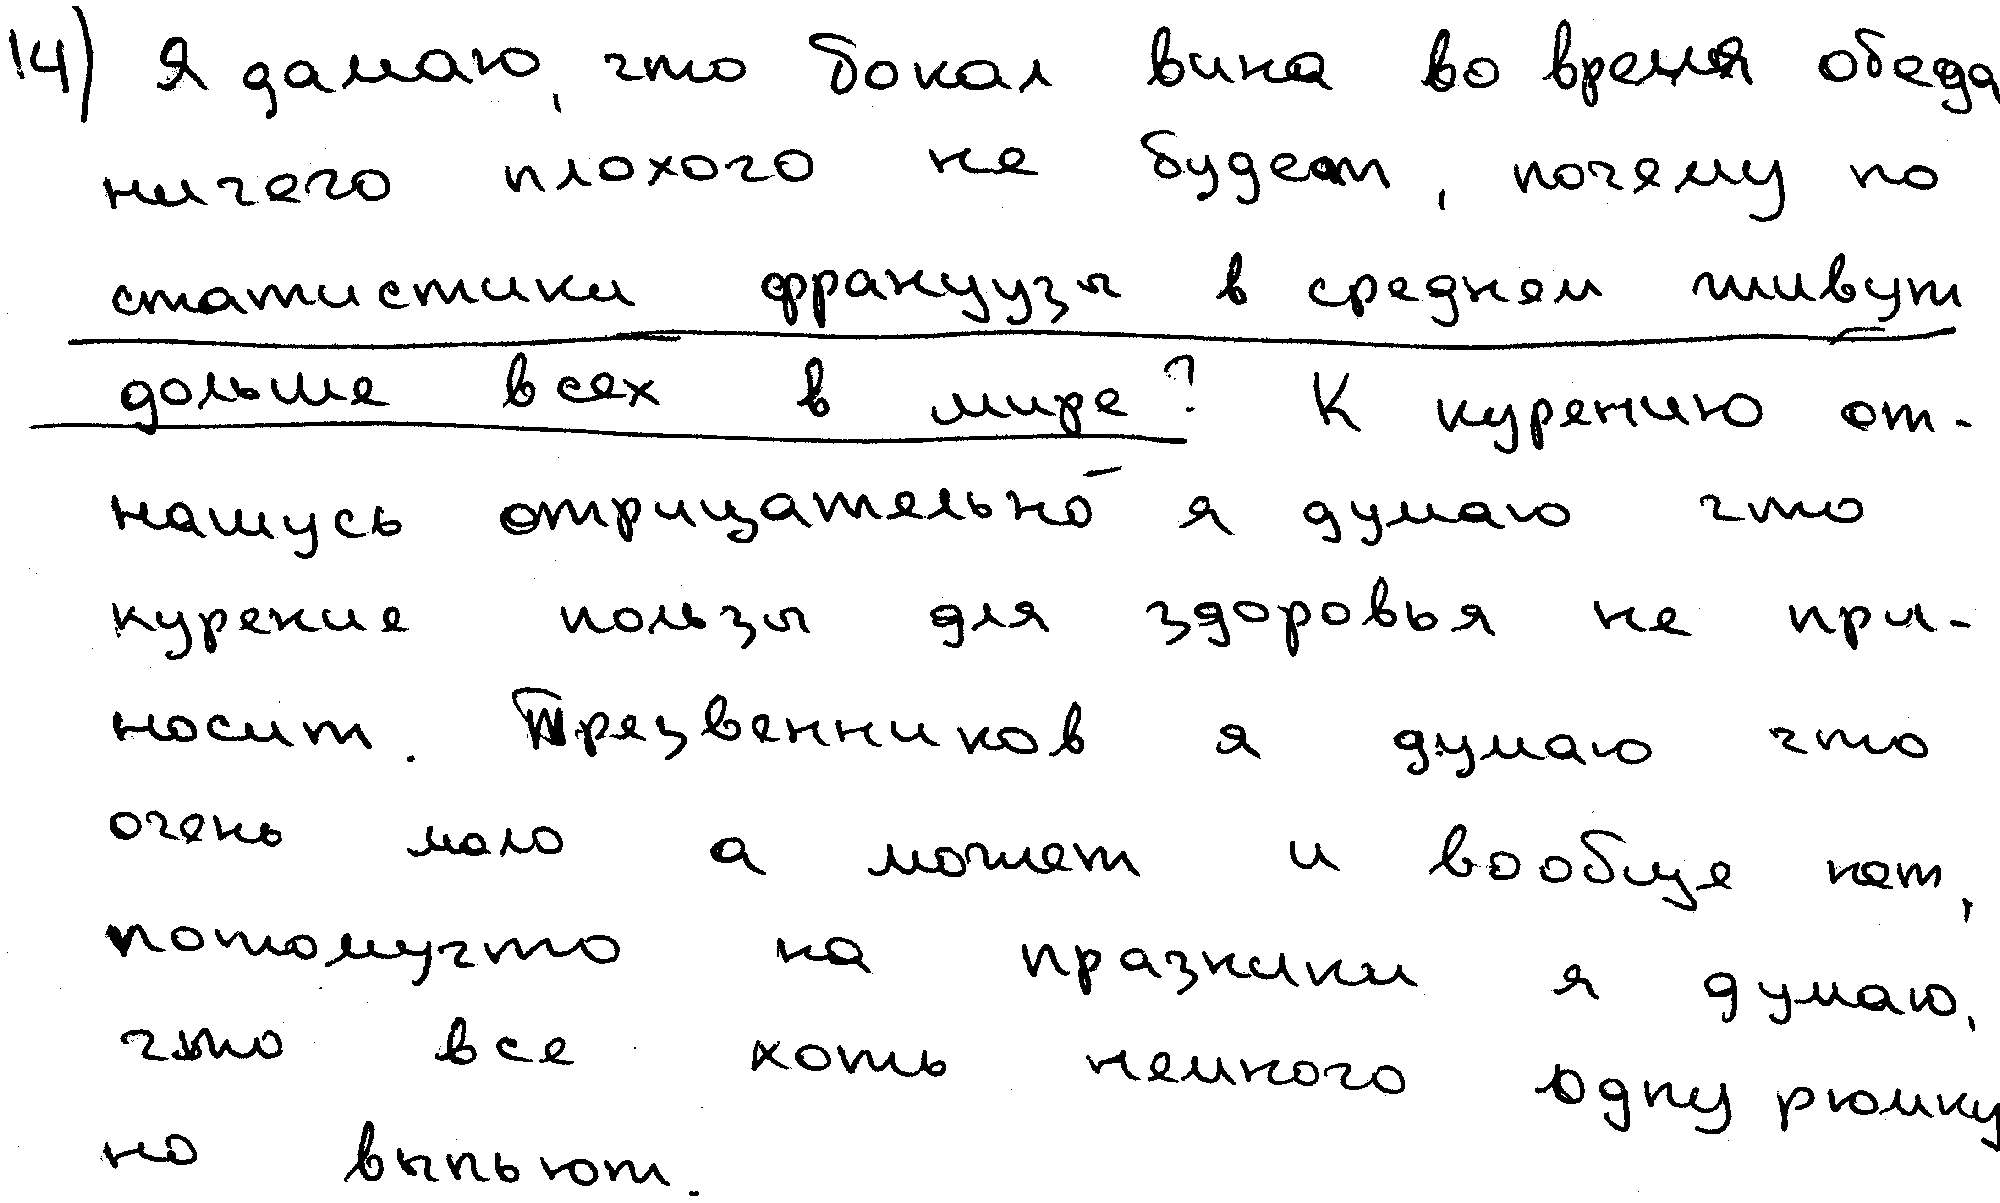 14) Я дамаю, что бокал вина во время обеда
ничего плохого не будет, почему по
статистики французы в среднем живут
дольше всех в мире? К курению от-
нашусь отрицательно я думаю что
курение пользы для здоровья не при-
носит. Трезвенников я думаю что
очень мало а может и вообще нет,
потомучто на празники я думаю,
что все хоть немного одну рюмку
но выпьют.